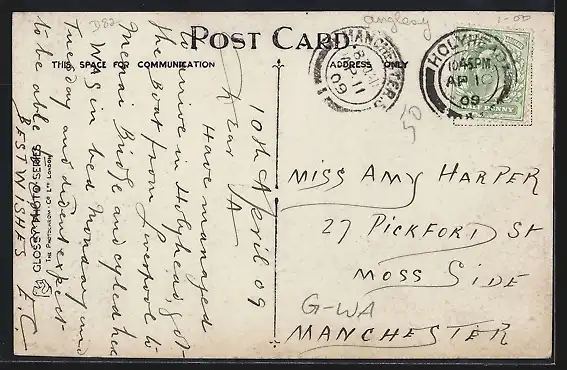 anglesey
1-00
D82
POST CARD.
THIS SPACE FOR COMMUNICATION
ADDRESS ONLY
MANCHESTER
AP 11
09
HOLYHEAD
10.45PM
AP 10
09
PENNY
50
10th April 09
Dear A
Have managed
to arrive in Holyhead, got
the Boat from Liverpool to
Menai Bridge and cycled here
WAS in bed Monday and
Tuesday and dident expect
to be able
BEST WISHES E.C
MISS AMY HARPER
27 PICKFORD St
MOSS SIDE
G-WA
MANCHESTER
PHOTO SERIES
THE PHOTOCHROM Co LTD LONDON